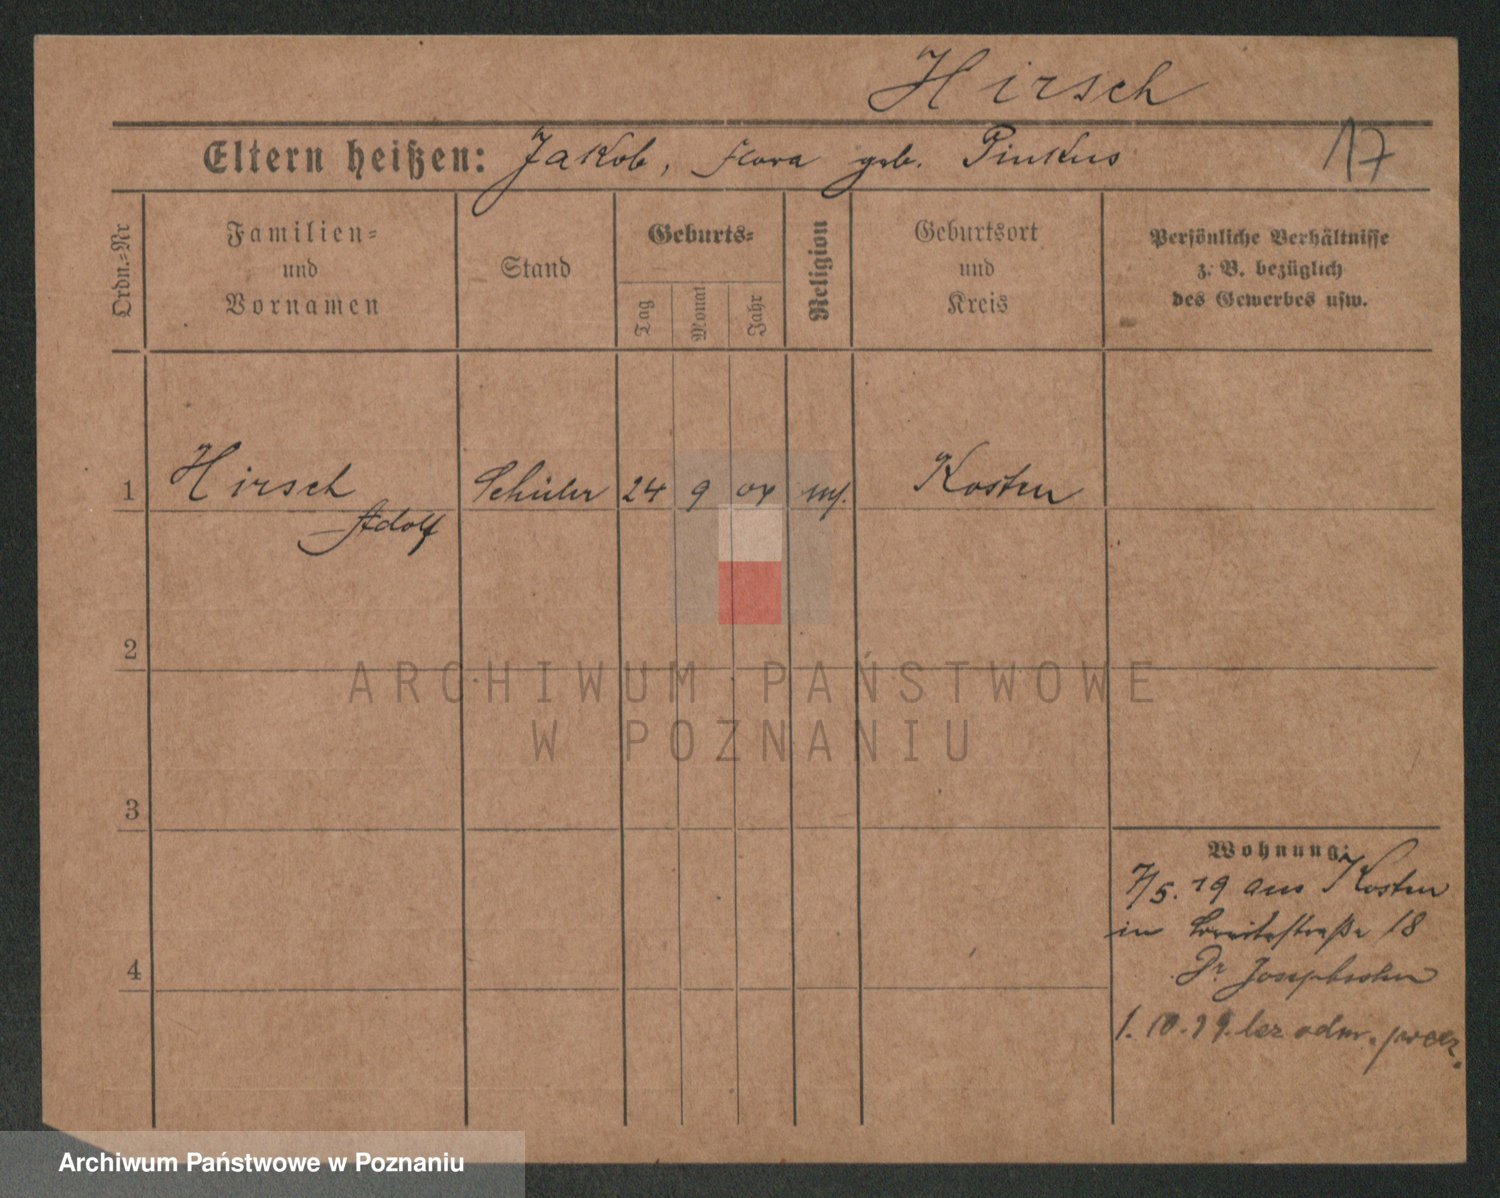 Hirsch
Eltern heißen: Jakob, Flora geb. Pinkus
17
Ordn.-Nr
Familien-
und
Vornamen
Stand
Geburts-
Tag
Monat
Jahr
Religion
Geburtsort
und
Kreis
Persönliche Verhältnisse
z. B. bezüglich
des Gewerbes usw.
1 Hirsch Schüler 24 9 04 Kosten
Adolf
2
ARCHIWUM PAŃSTWOWE
W POZNANIU
3
Wohnung:
7/5. 19 aus Kosten
in Breitestraße 18
Dr Josephsohn
4
1.10.19. bez adm.
Archiwum Państwowe w Poznaniu